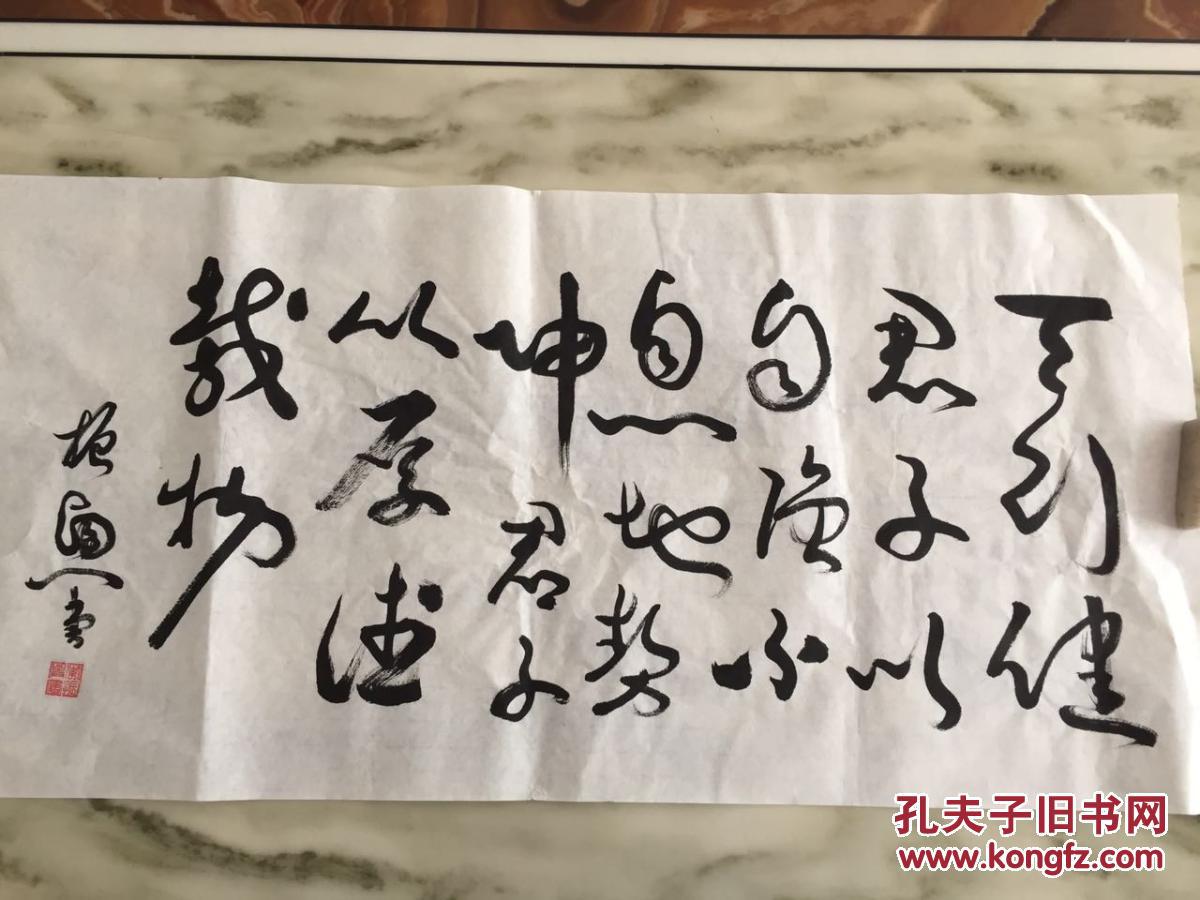 天行健
君子以
自强不
息地势
坤君子
以厚德
载物
书
孔夫子旧书网
www.kongfz.com